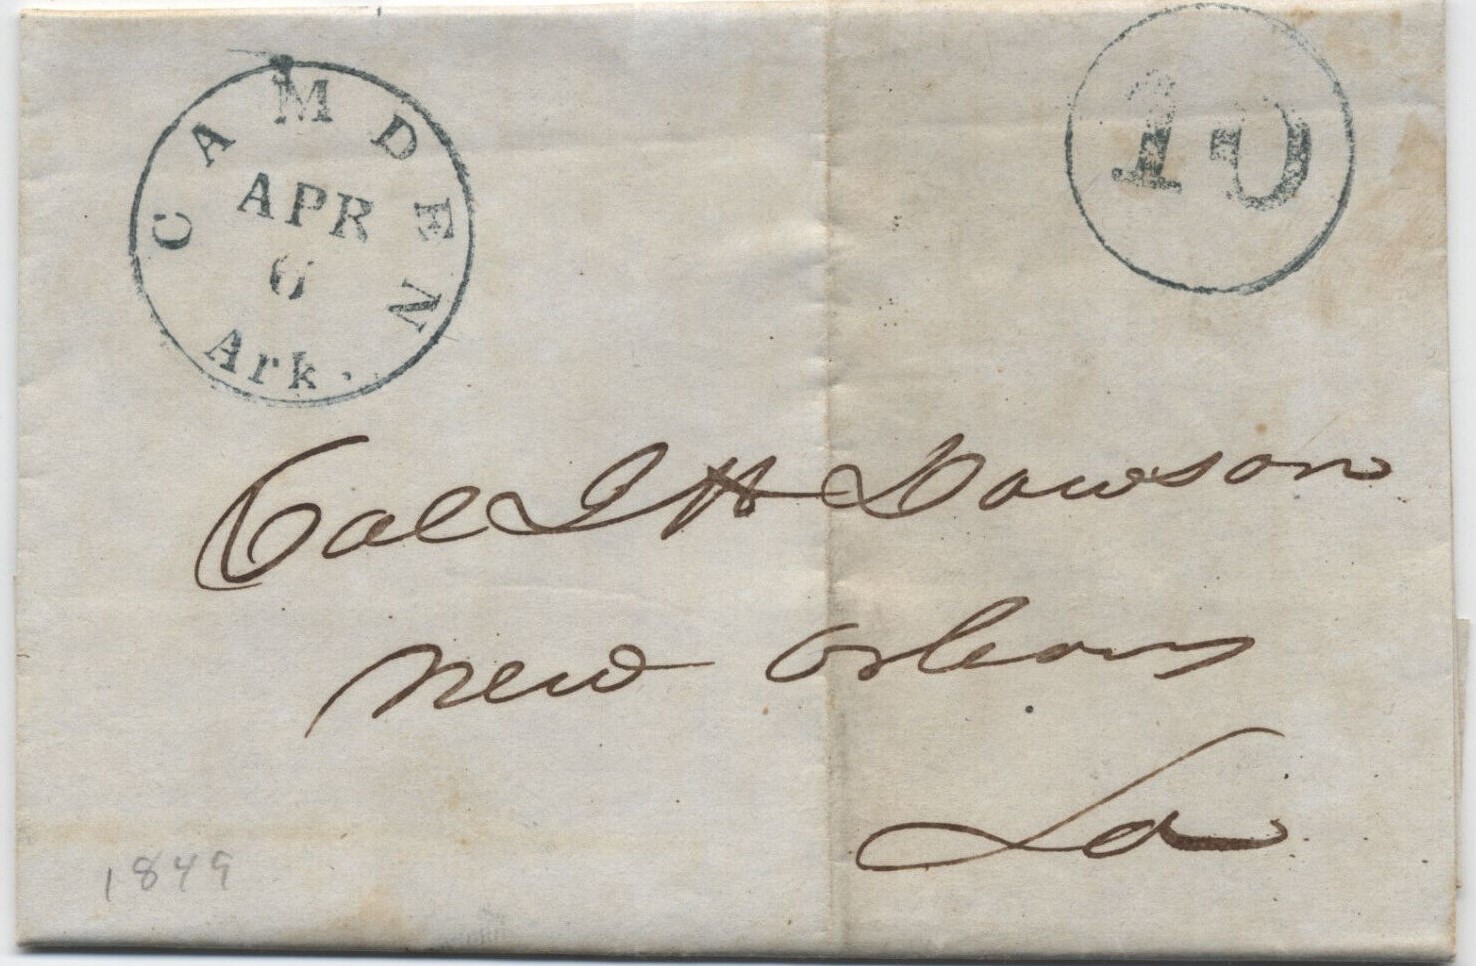 CAMDEN
APR
6
Ark.
10
Col J H Dawson
New Orleans
La
1849